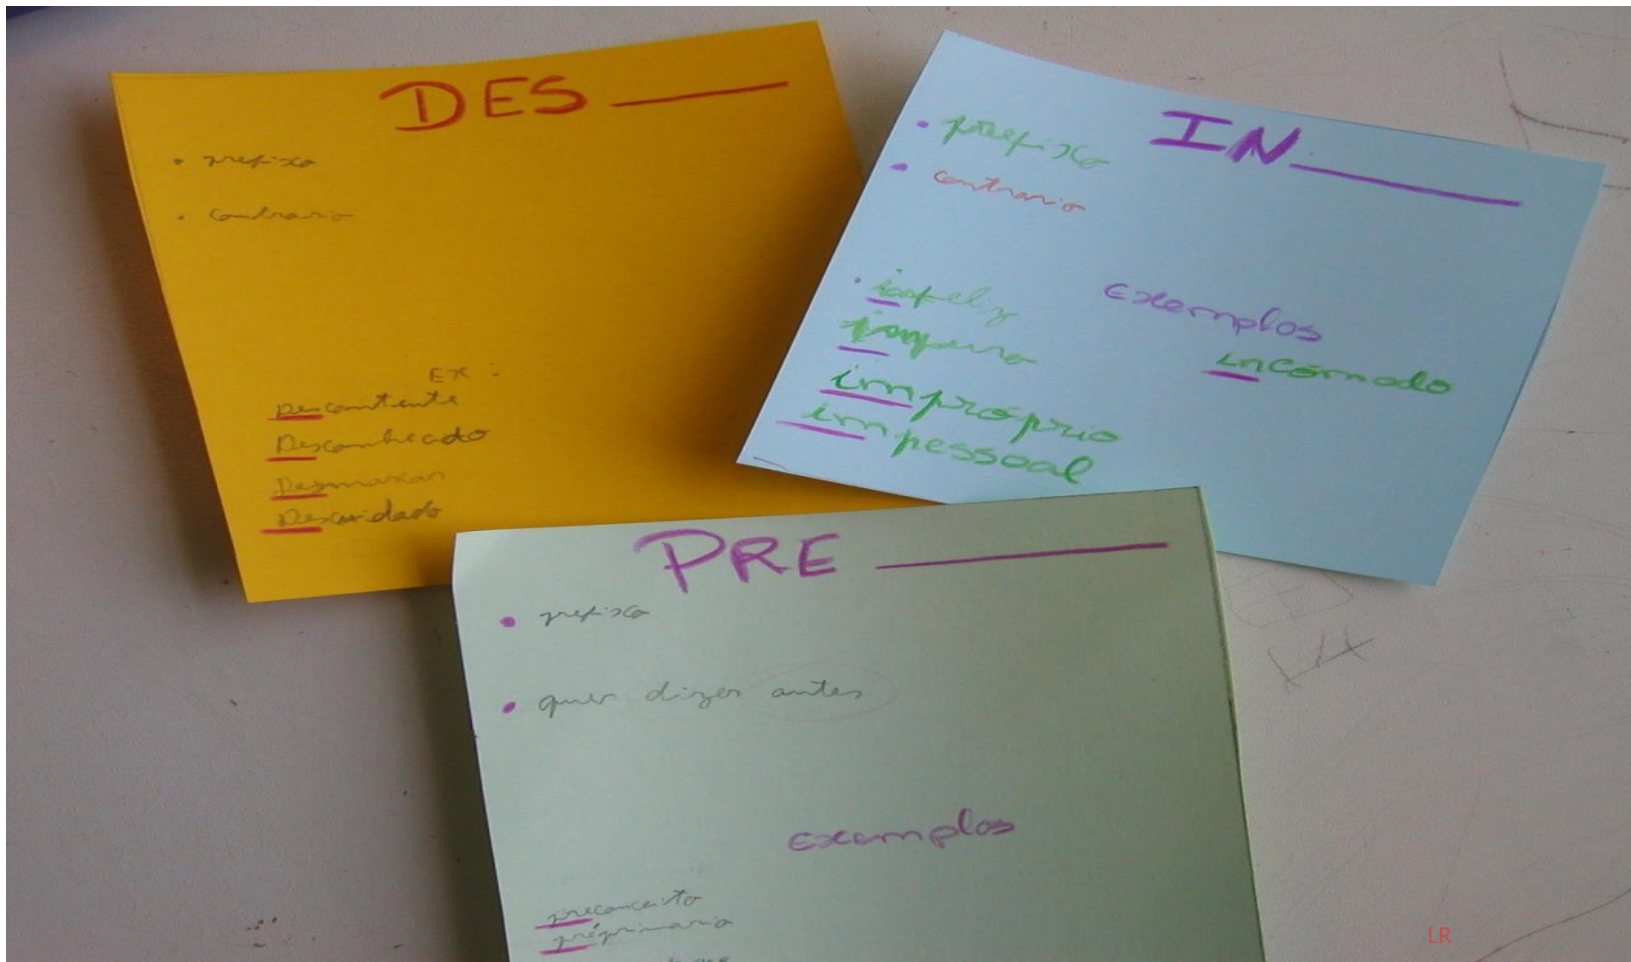 DES
• prefixo
• contrario
Ex:
Descontente
Desconhecido
Desmarcar
Descuidado
IN
• prefixo
• contrario
Exemplos
• infeliz
impuro
incomodo
impróprio
impessoal
PRE
• prefixo
• quer dizer antes
Exemplos
preconceito
préprimaria
LR